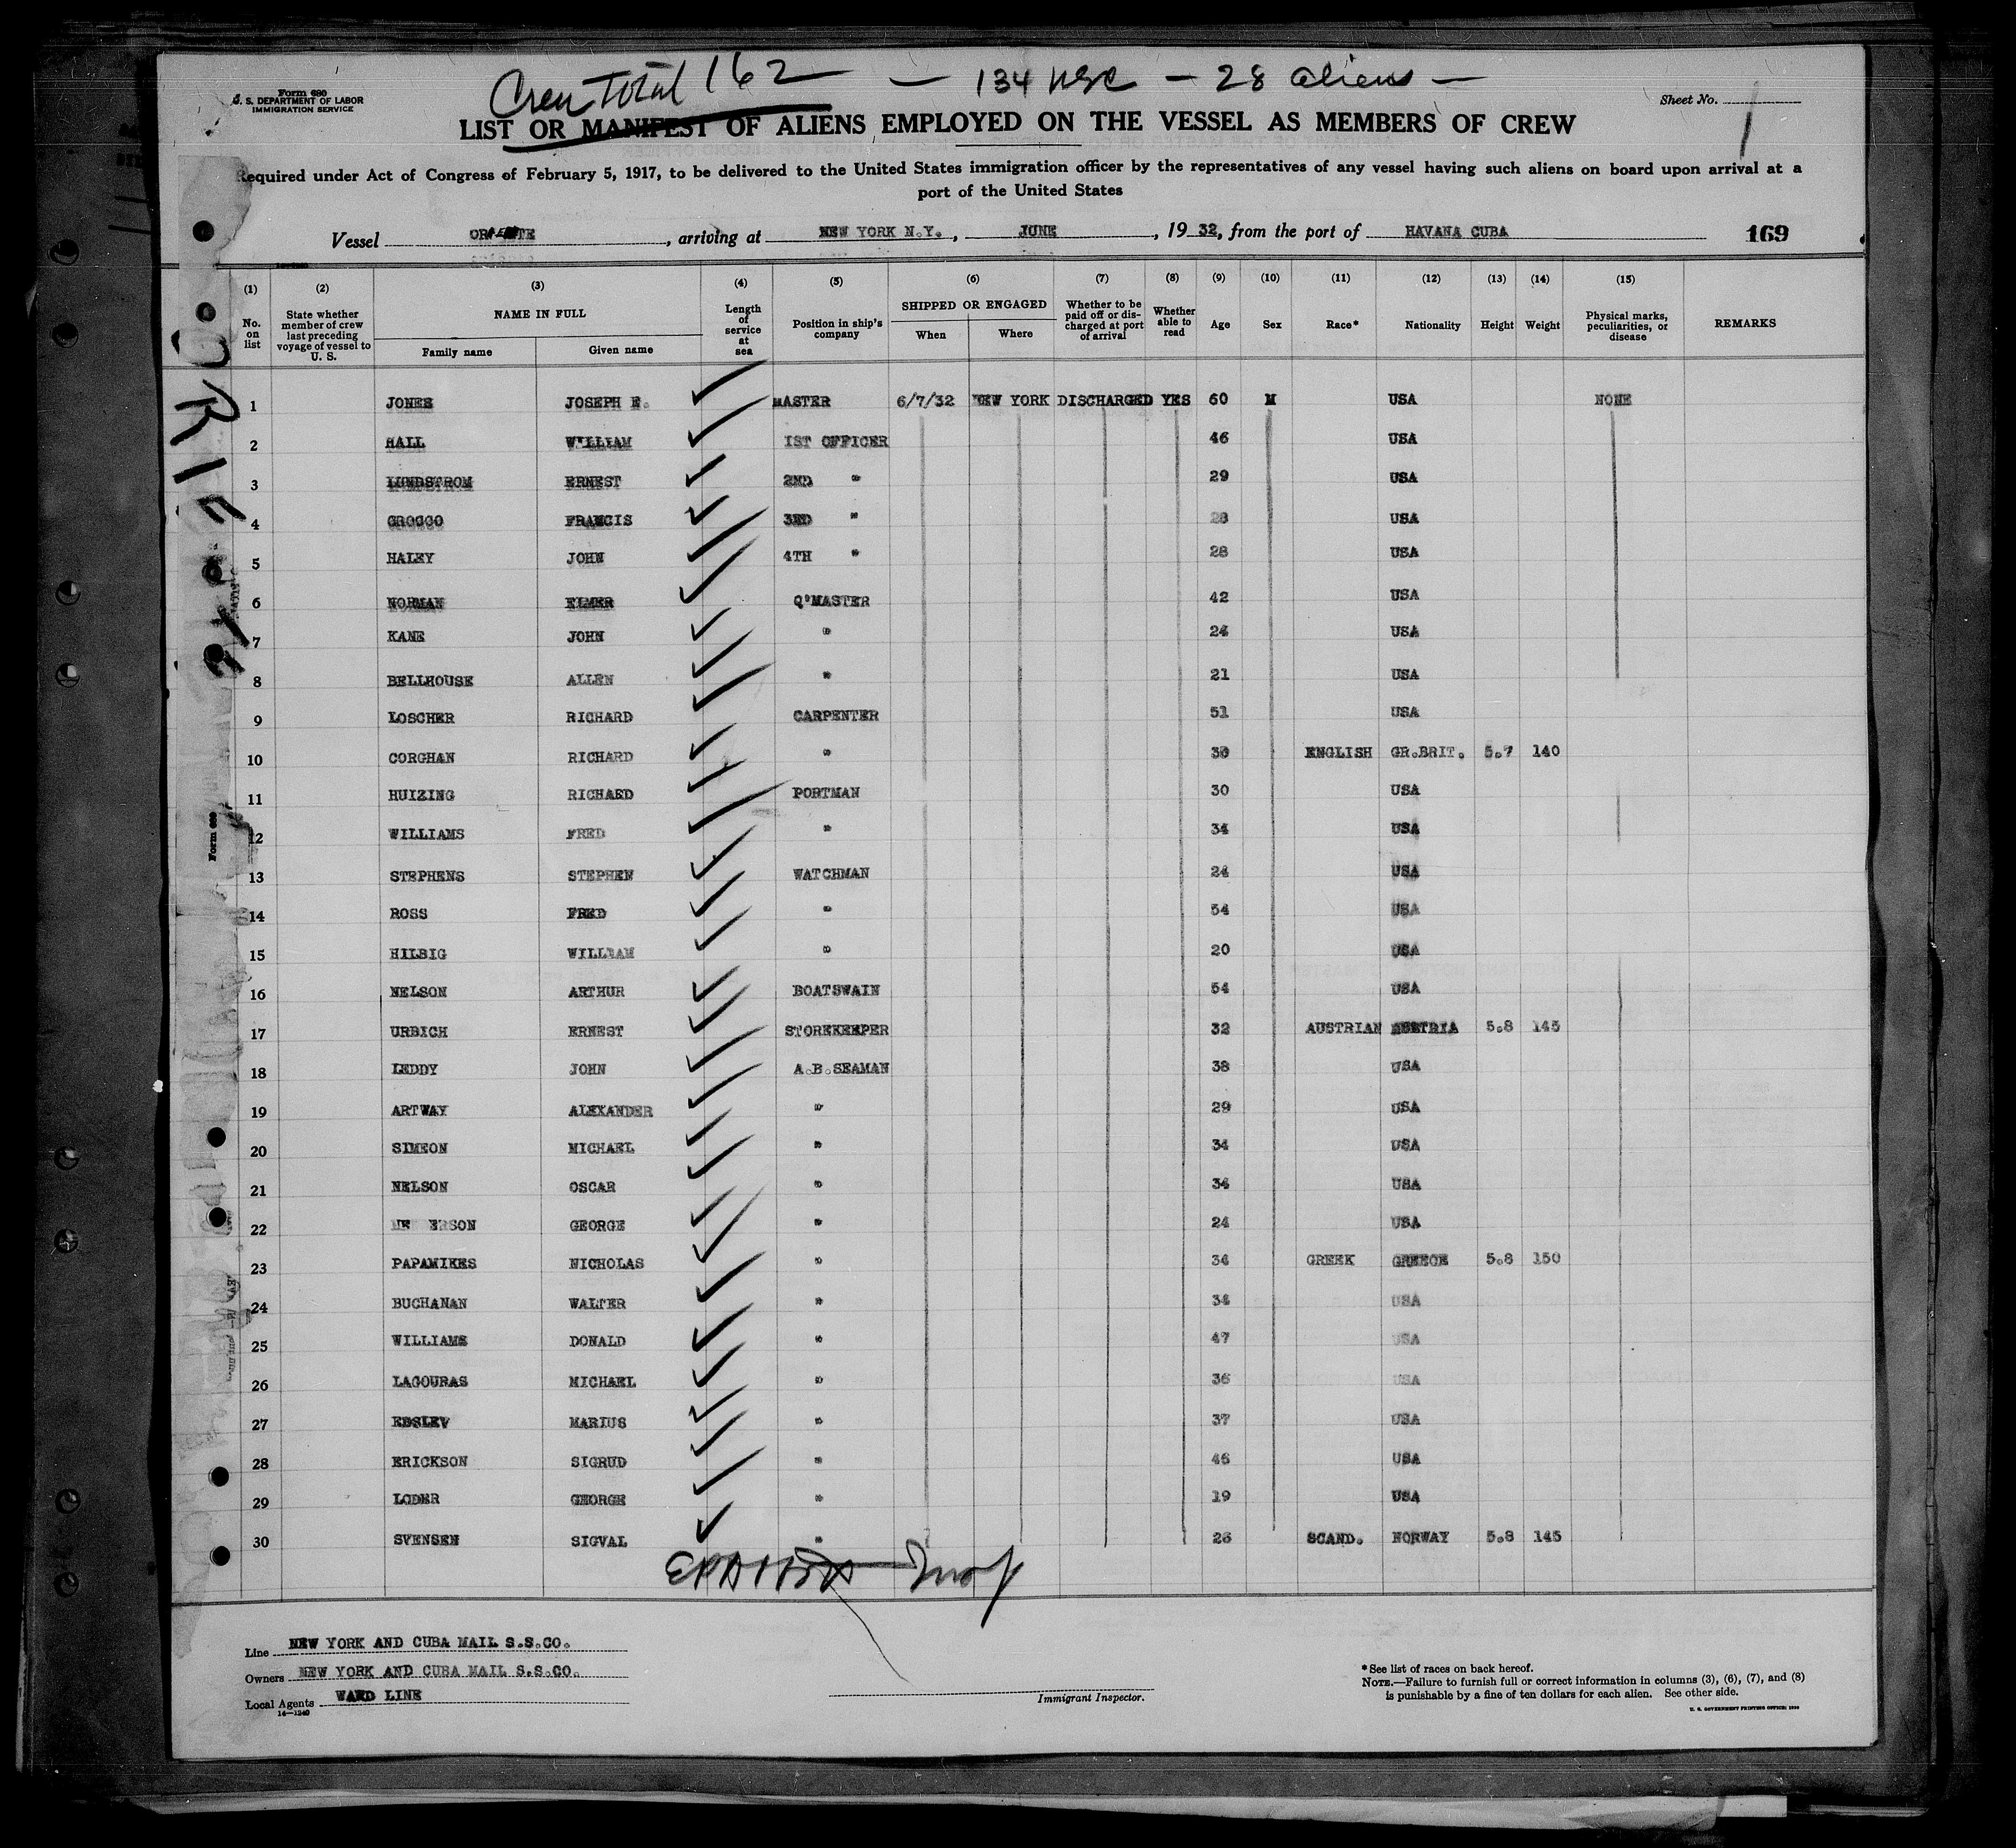 Crew Total 162 — 134 USC — 28 aliens —
Form 680
U. S. DEPARTMENT OF LABOR
IMMIGRATION SERVICE
Sheet No. 1
LIST OR MANIFEST OF ALIENS EMPLOYED ON THE VESSEL AS MEMBERS OF CREW
Required under Act of Congress of February 5, 1917, to be delivered to the United States immigration officer by the representatives of any vessel having such aliens on board upon arrival at a
port of the United States
Vessel ORIENTE, arriving at NEW YORK N.Y., JUNE, 1932, from the port of HAVANA CUBA 169
(1) No. on list
(2) State whether member of crew last preceding voyage of vessel to U. S.
(3) NAME IN FULL Family name Given name
(4) Length of service at sea
(5) Position in ship's company
(6) SHIPPED OR ENGAGED When Where
(7) Whether to be paid off or discharged at port of arrival
(8) Whether able to read
(9) Age
(10) Sex
(11) Race*
(12) Nationality
(13) Height
(14) Weight
(15) Physical marks, peculiarities, or disease
REMARKS
1 JONES JOSEPH E. MASTER 6/7/32 NEW YORK DISCHARGED YES 60 M USA NONE
2 HALL WILLIAM 1ST OFFICER 46 USA
3 LUNDSTROM ERNEST 2ND " 29 USA
4 GROCCO FRANCIS 3RD " 28 USA
5 HALEY JOHN 4TH " 28 USA
6 NORMAN ELMER Q'MASTER 42 USA
7 KANE JOHN " 24 USA
8 BELLHOUSE ALLEN " 21 USA
9 LOSCHER RICHARD CARPENTER 51 USA
10 CORGHAN RICHARD " 30 ENGLISH GR.BRIT. 5.7 140
11 HUIZING RICHARD PORTMAN 30 USA
12 WILLIAMS FRED " 34 USA
13 STEPHENS STEPHEN WATCHMAN 24 USA
14 ROSS FRED " 54 USA
15 HILBIG WILLIAM " 20 USA
16 NELSON ARTHUR BOATSWAIN 54 USA
17 URBICH ERNEST STOREKEEPER 32 AUSTRIAN AUSTRIA 5.8 145
18 LEDDY JOHN A.B.SEAMAN 38 USA
19 ARTWAY ALEXANDER " 29 USA
20 SIMEON MICHAEL " 34 USA
21 NELSON OSCAR " 34 USA
22 GEORGE " 24 USA
23 PAPAMIKES NICHOLAS " 34 GREEK GREECE 5.8 150
24 BUCHANAN WALTER " 34 USA
25 WILLIAMS DONALD " 47 USA
26 LAGOURAS MICHAEL " 36 USA
27 EBSLEV MARIUS " 37 USA
28 ERICKSON SIGRUD " 46 USA
29 LODER GEORGE " 19 USA
30 SVENSEN SIGVAL " 26 SCAND. NORWAY 5.8 145
Line NEW YORK AND CUBA MAIL S.S.CO.
Owners NEW YORK AND CUBA MAIL S.S.CO.
Local Agents WARD LINE
14—1240
Immigrant Inspector.
*See list of races on back hereof.
NOTE.—Failure to furnish full or correct information in columns (3), (6), (7), and (8)
is punishable by a fine of ten dollars for each alien. See other side.
U. S. GOVERNMENT PRINTING OFFICE: 1930
Form 680